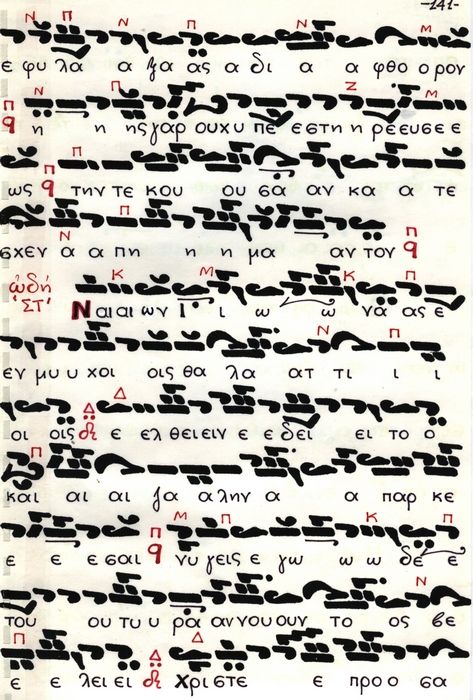 -141-
ε φυ λα α ξα ας α δι α α φθο ο ρον
η η ης γαρ ου χυ πε ε στη η ρε ευ σε ε
ως την τε κου ου σα αν κα α τε
σχεν α α πη η η μα αν τον
ᾠδή ΣΤ΄ Ναι αι ων Ι ι ω ω να ας ε
εν μυ υ χοι οις θα λα ατ τι ι ι
οι οις ε ελ θει ειν ε ε δει ει το ο
και αι αι ζα α λην α α παρ κε
ε ε ε σαι νυ γεις ε γω ω ω δε ε
του ου τυ υ ρα αν νου ουν το ος βε
ε ε λει ει Χρι στε ε προ ο σα